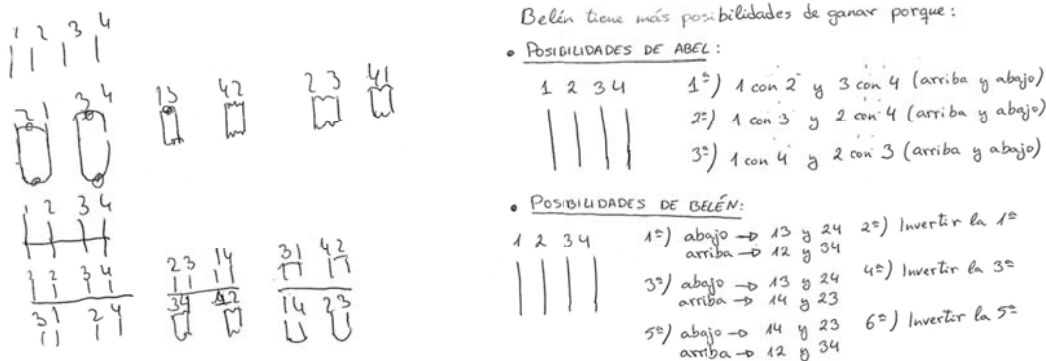 1 2 3 4
2 1 3 4
13 42 23 41
1 2 3 4
1 2 3 4
31 24
23 14
34 42
31 42
14 23
Belén tiene más posibilidades de ganar porque:
• POSIBILIDADES DE ABEL:
1 2 3 4
1º) 1 con 2 y 3 con 4 (arriba y abajo)
2º) 1 con 3 y 2 con 4 (arriba y abajo)
3º) 1 con 4 y 2 con 3 (arriba y abajo)
• POSIBILIDADES DE BELÉN:
1 2 3 4
1º) abajo → 13 y 24 2º) Invertir la 1º
arriba → 12 y 34
3º) abajo → 13 y 24 4º) Invertir la 3º
arriba → 14 y 23
5º) abajo → 14 y 23 6º) Invertir la 5º
arriba → 12 y 34